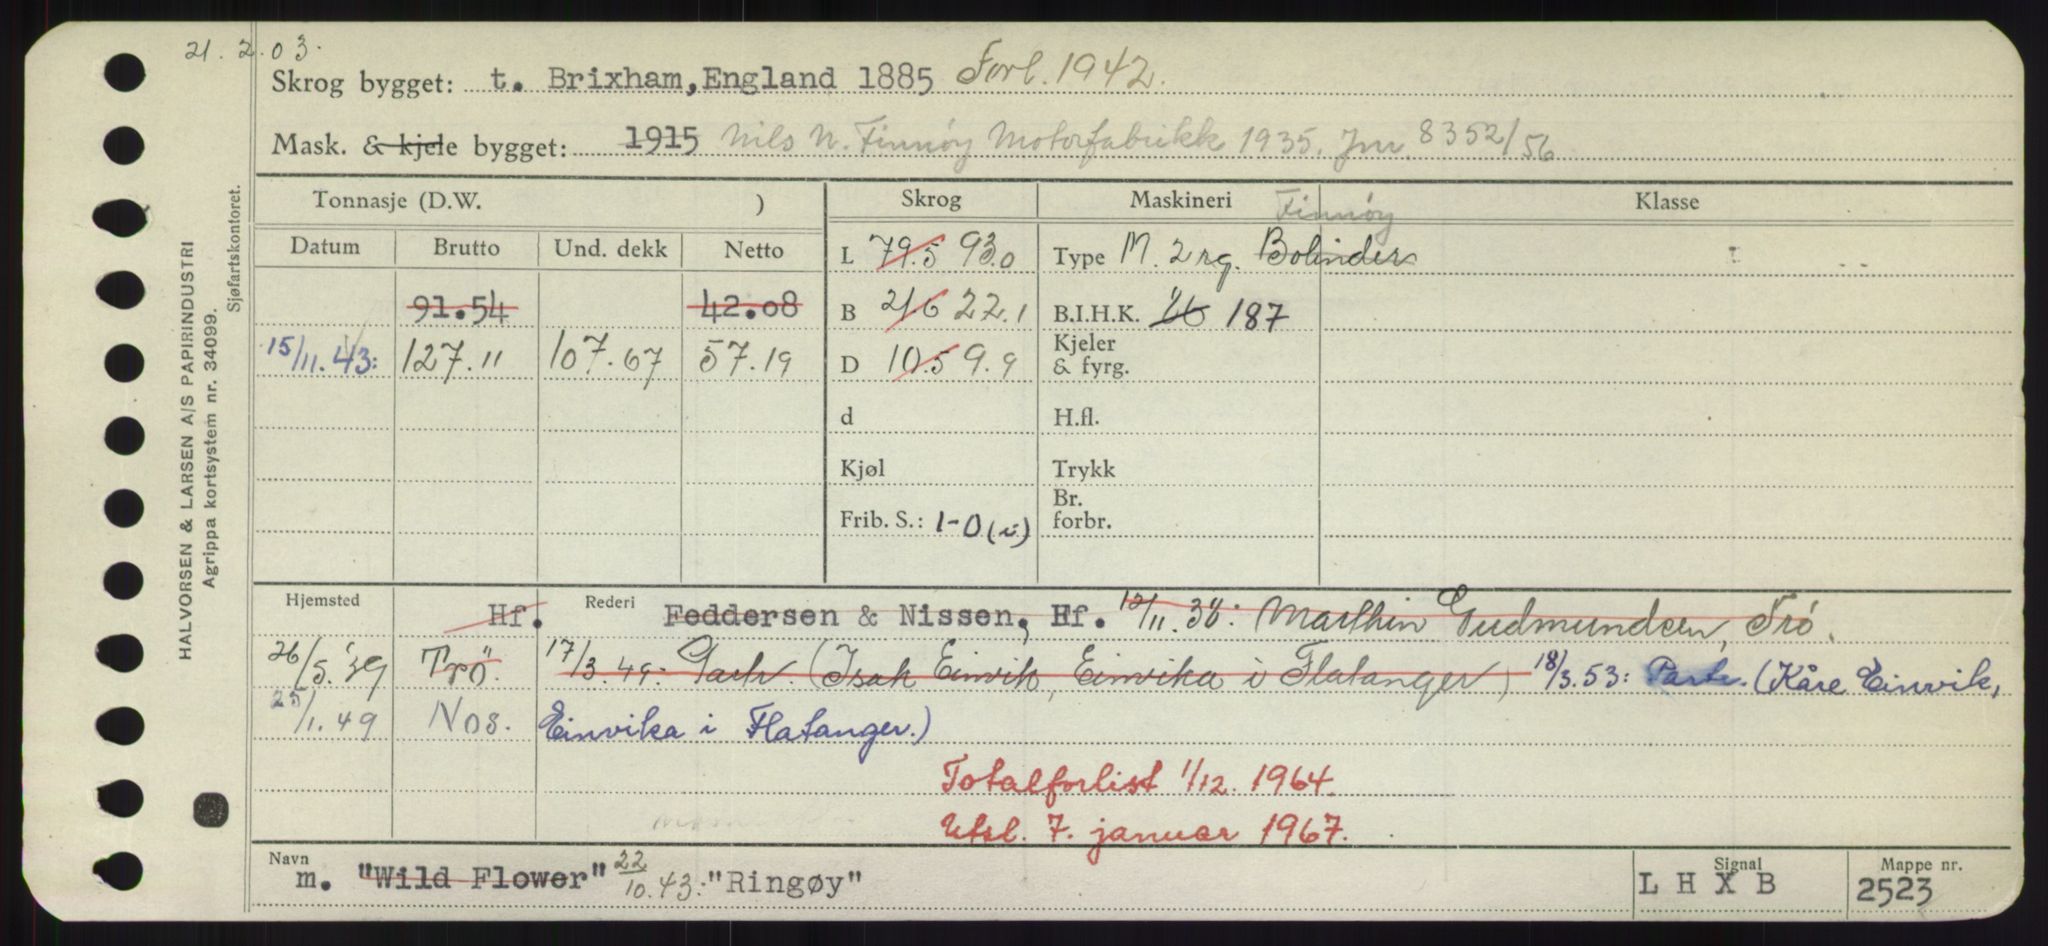 21.2.03.
Skrog bygget: t. Brixham, England 1885 Forl. 1942.
Mask. & kjele bygget: 1915 Nils N. Finnøy Motorfabrikk 1935. Jnr. 8352/56
Tonnasje (D.W. ) Skrog Maskineri Finnøy Klasse
Datum Brutto Und. dekk Netto L 79.5 93.0 Type M. 2 rg. Bolinder
91.54 42.08 B 21.6 22.1 B.I.H.K. 187
15/11.43: 127.11 107.67 57.19 D 10.5 9.9 Kjeler & fyrg.
d H.fl.
Kjøl Trykk
Frib. S.: 1-0 (i) Br. forbr.
Hjemsted Hf. Rederi Feddersen & Nissen, Hf. 12/11.38: Marthin Gudmundsen, Trö.
26/5.39 Trö. 17/3.49: Partr. (Isak Einvik, Einvika i Flatanger) 18/3.53: Partr. (Kåre Einvik,
25/1.49 Nos. Einvika i Flatanger.)
Totalforlist 1/12. 1964.
Utsl. 7. januar 1967.
Navn m. "Wild Flower" 22/10.43: "Ringøy" Signal L H X B Mappe nr. 2523
HALVORSEN & LARSEN A/S PAPIRINDUSTRI
Agrippa kortsystem nr. 34099.
Sjøfartskontoret.